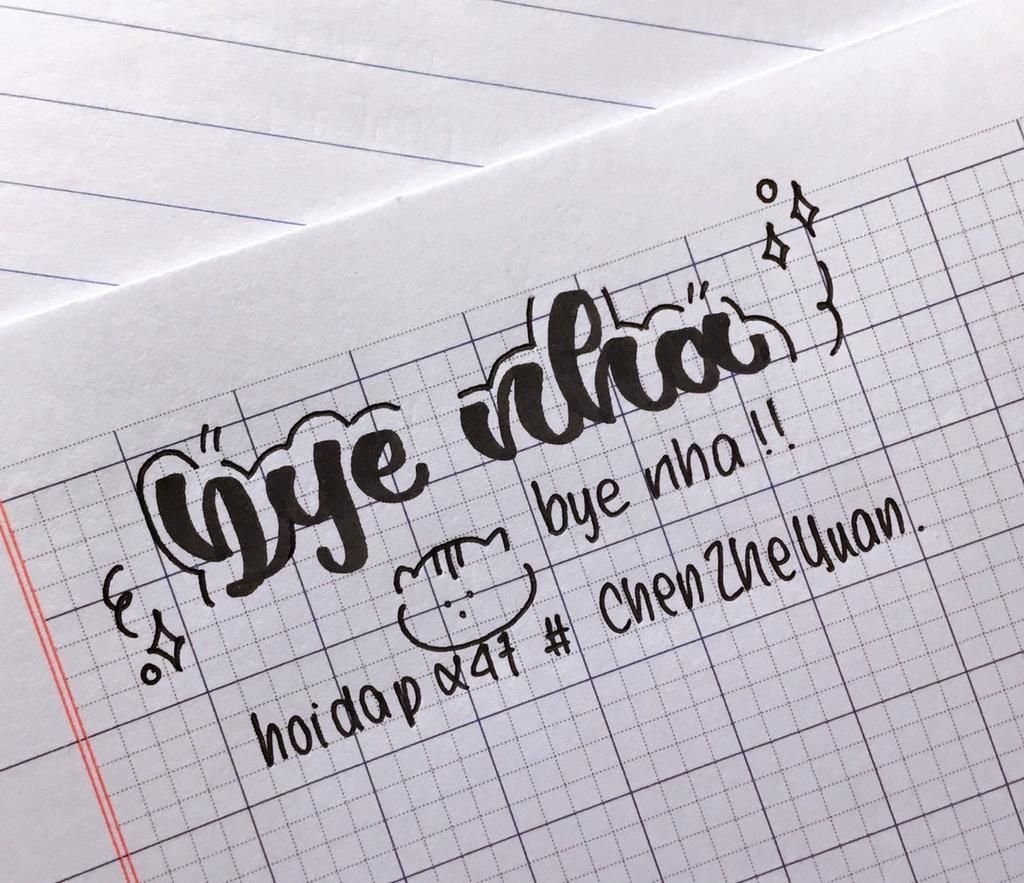 bye nha
bye nha !!
hoidap α247 # ChenZheYuan.